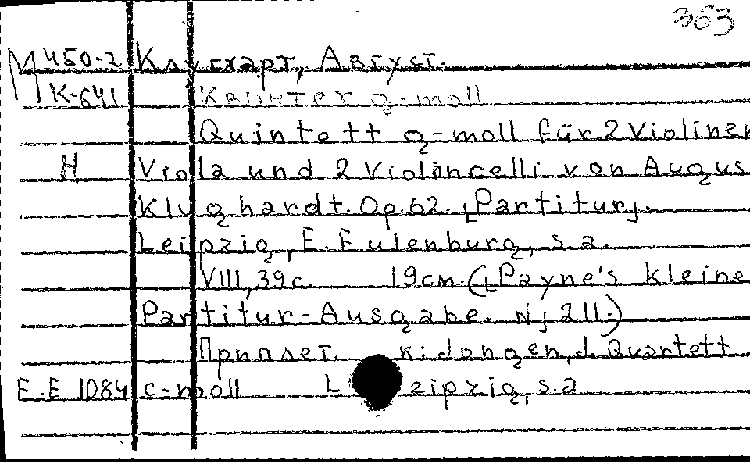 363
М 450-2 Клугхарт, Август.
К-641 Квинтет g-moll
Quintett g-moll für 2 Violinen
Н Viola und 2 Violoncelli von Augus
Klughardt. Op. 62. [Partitur].
Leipzig, E. Eulenburg, s.a.
VIII, 39 с. 19 см. ([Payne's Kleine
Partitur-Ausgabe. N; 211.)
Приплет. Quartett
E.E 1084 c-moll Leipzig, s.a